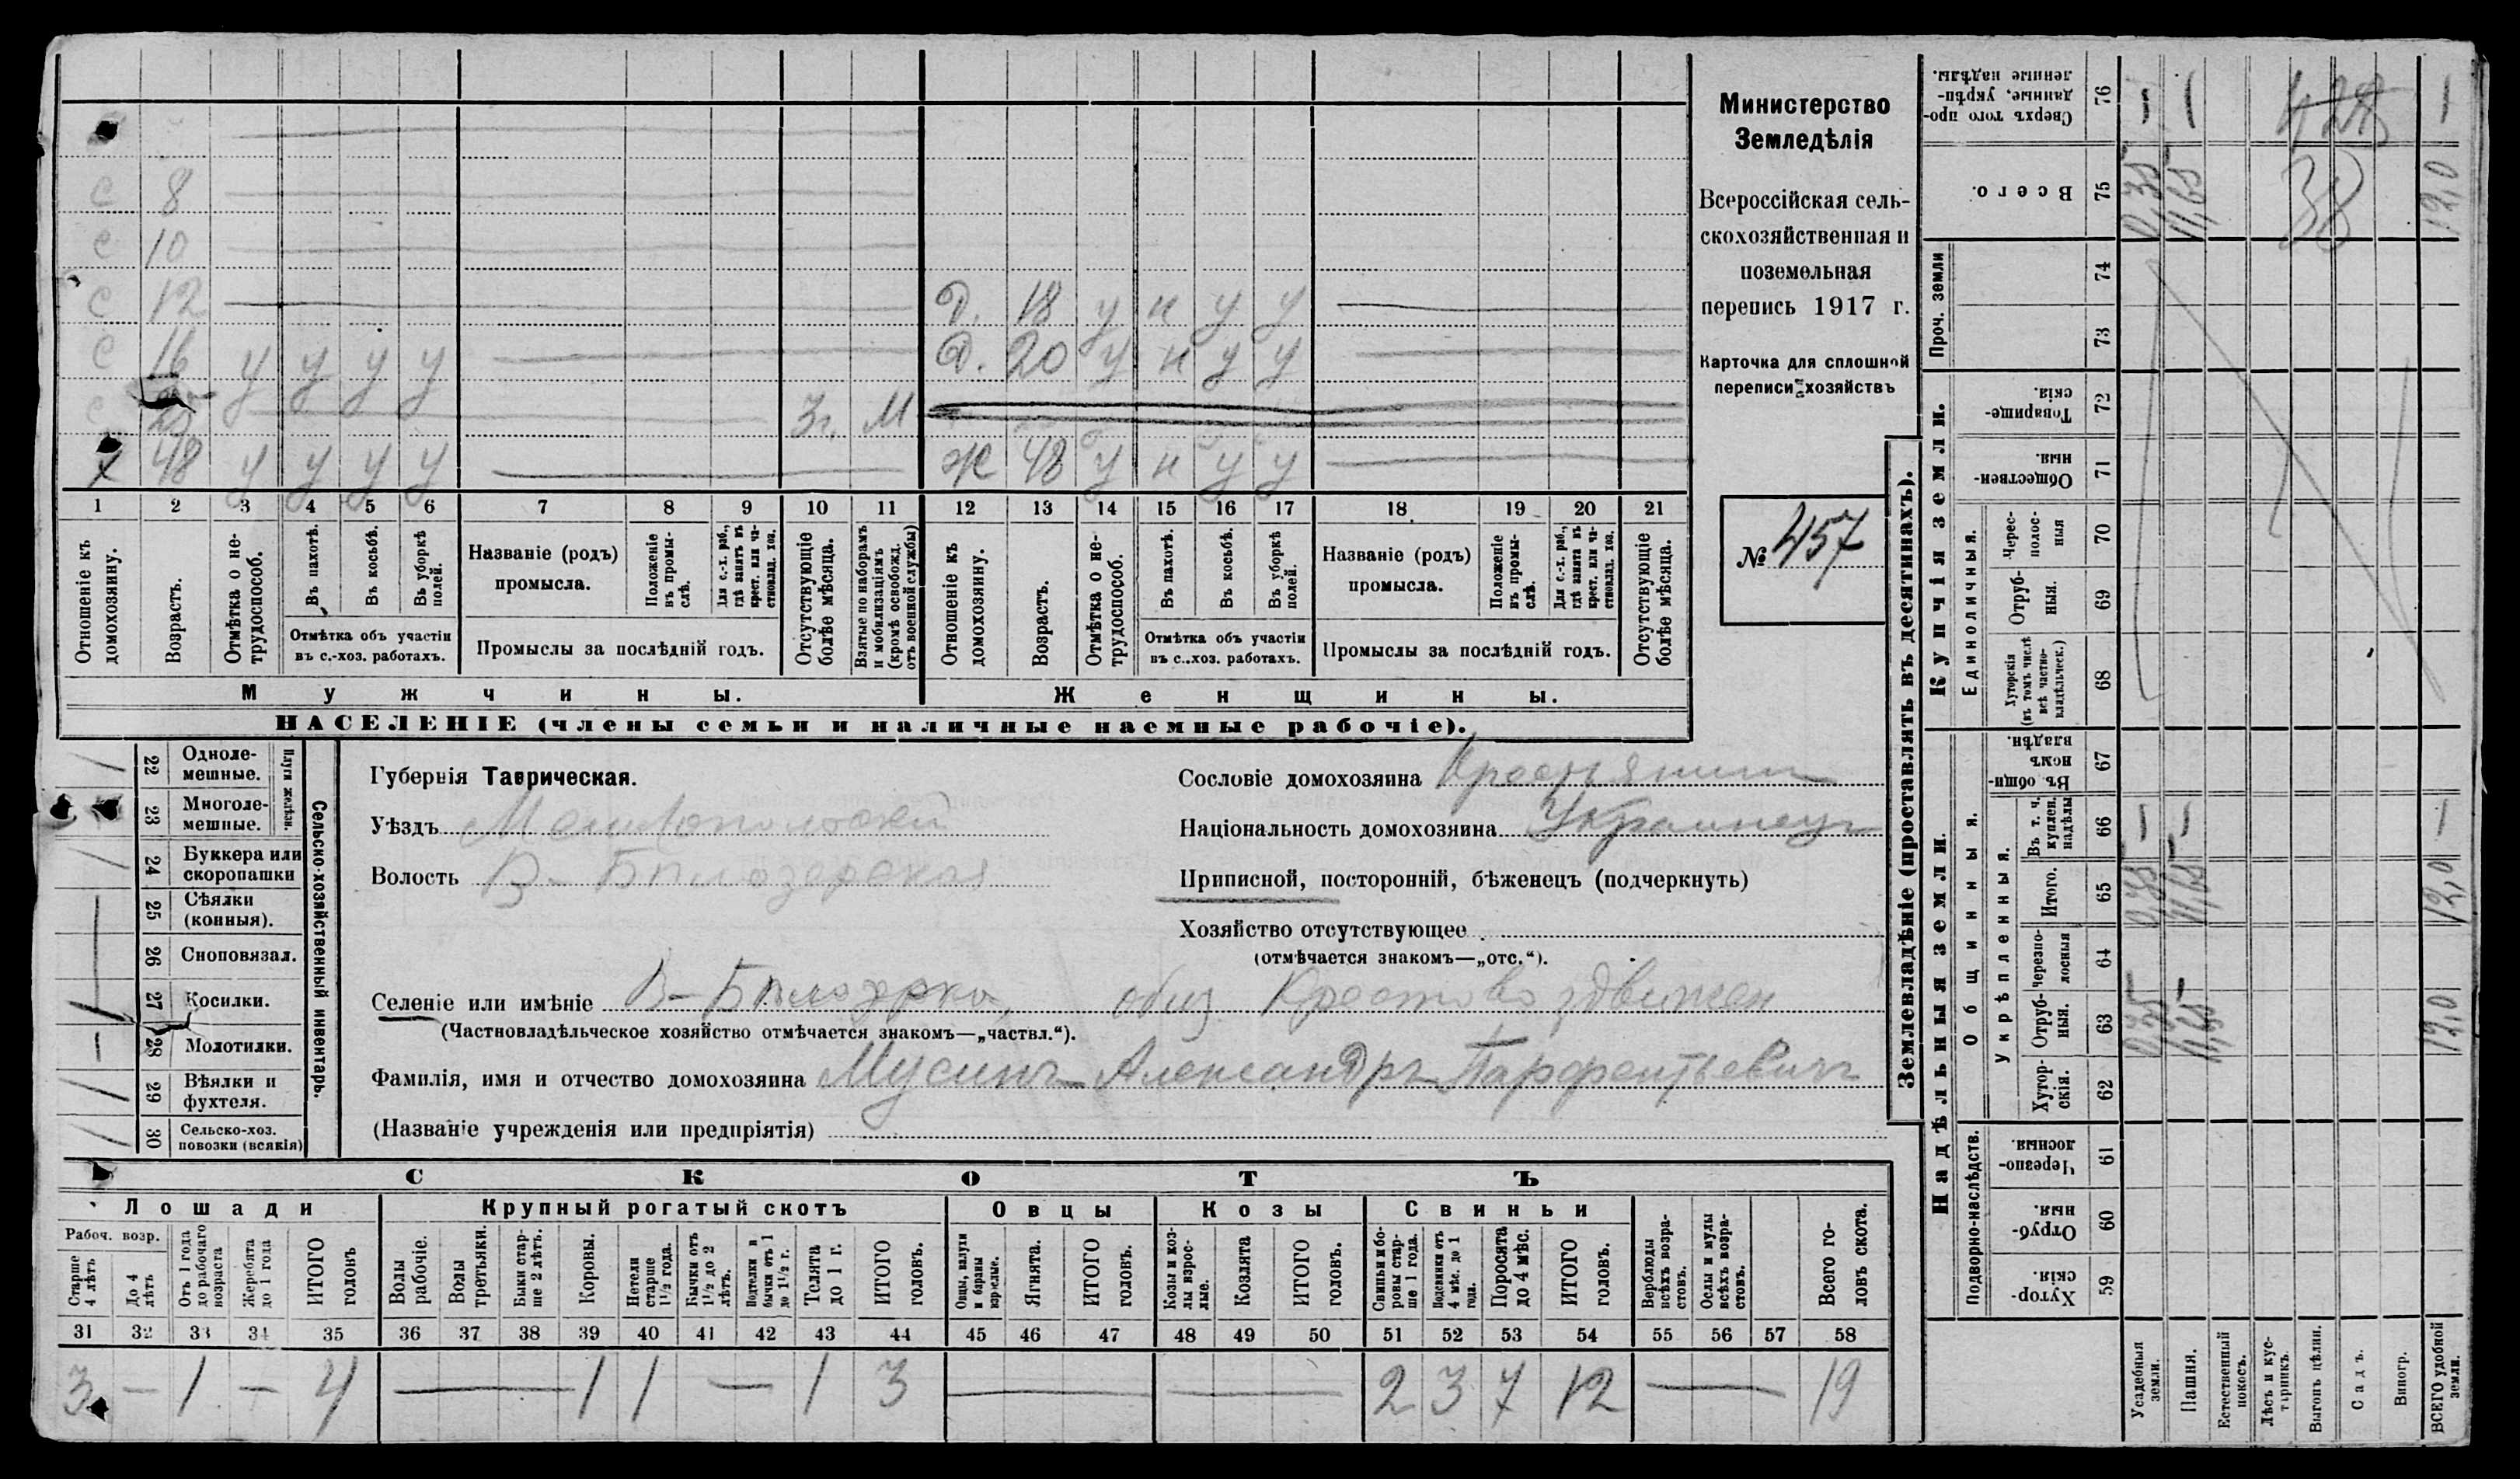 с 8
с 10
с 12 Д. 18 у н у у
с 16 у у у у Д. 20 у н у у
с 3г. М
х 48 у у у у Ж 48 у н у у
1 2 3 4 5 6 7 8 9 10 11 12 13 14 15 16 17 18 19 20 21
Отношеніе къ домохозяину.
Возрастъ.
Отмѣтка о не-трудоспособ.
Въ пахотѣ.
Въ косьбѣ.
Въ уборкѣ полей.
Отмѣтка объ участіи
въ с.-хоз. работахъ.
Названіе (родъ)
промысла.
Положеніе въ промы-слѣ.
Для с.-х. раб., гдѣ занятъ въ крест. или ча-стновлад. хоз.
Промыслы за послѣдній годъ.
Отсутствующіе болѣе мѣсяца.
Взятые по наборамъ и мобилизаціямъ (кромѣ освобожд. отъ военной службы)
Отношеніе къ домохозяину.
Возрастъ.
Отмѣтка о не-трудоспособ.
Въ пахотѣ.
Въ косьбѣ.
Въ уборкѣ полей.
Отмѣтка объ участіи
въ с.-хоз. работахъ.
Названіе (родъ)
промысла.
Положеніе въ промы-слѣ.
Для с.-х. раб., гдѣ занята въ крест. или ча-стновлад. хоз.
Промыслы за послѣдній годъ.
Отсутствующіе болѣе мѣсяца.
Мужчины. Женщины.
НАСЕЛЕНІЕ (члены семьи и наличные наемные рабочіе).
Министерство
Земледѣлія
Всероссійская сель-
скохозяйственная и
поземельная
перепись 1917 г.
Карточка для сплошной
переписи хозяйствъ
№ 457
Сельско-хозяйственный инвентарь.
Плуги желѣзн.
22 Одноле-мешные. 1
23 Многоле-мешные.
24 Буккера или скоропашки 1
25 Сѣялки (конныя). —
26 Сноповязал. —
27 Косилки. 1
28 Молотилки. —
29 Вѣялки и фухтеля. 1
30 Сельско-хоз. повозки (всякія) 1
Губернія Таврическая.
Уѣздъ Мелитопольскій
Волость В-Бѣлозерская
Сословіе домохозяина Крестьянин
Національность домохозяина Украинецъ
Приписной, посторонній, бѣженецъ (подчеркнуть)
Хозяйство отсутствующее
(отмѣчается знакомъ—„отс.“).
Селеніе или имѣніе В-Бѣлозерка, общ Крестовоздвижен
(Частновладѣльческое хозяйство отмѣчается знакомъ—„частвл.“).
Фамилія, имя и отчество домохозяина Мусинъ Александръ Парфентьевичъ
(Названіе учрежденія или предпріятія)
СКОТЪ
Лошади Крупный рогатый скотъ Овцы Козы Свиньи
Рабоч. возр.
Старше 4 лѣтъ
До 4 лѣтъ
Отъ 1 года до рабочаго возраста
Жеребята до 1 года
ИТОГО головъ
Волы рабочіе.
Волы третьяки.
Быки стар-ше 2 лѣтъ.
Коровы.
Нетели старше 1½ года.
Бычки отъ 1½ до 2 лѣтъ.
Подтелки и бычки отъ 1 до 1½ г.
Телята до 1 г.
ИТОГО головъ.
Овцы, валухи и бараны взрослые.
Ягнята.
ИТОГО головъ.
Козы и коз-лы взрос-лые.
Козлята
ИТОГО головъ.
Свиньи и бо-ровы стар-ше 1 года.
Подсвинки отъ 4 мѣс. до 1 года.
Поросята до 4 мѣс.
ИТОГО головъ.
Верблюды всѣхъ возра-стовъ.
Ослы и мулы всѣхъ возра-стовъ.
Всего го-ловъ скота.
31 32 33 34 35 36 37 38 39 40 41 42 43 44 45 46 47 48 49 50 51 52 53 54 55 56 57 58
3 — 1 — 4 — 1 1 — 1 3 — — 2 3 7 12 — 19
Землевладѣніе (проставлять въ десятинахъ).
Купчія земли.
Надѣльныя земли.
Проч. земли
Единоличныя.
Общинныя.
Укрѣпленныя.
Подворно-наслѣдств.
Сверхъ того про-данные, укрѣп-ленные надѣлы. 76 — — —
Всего. 75 0,35 11,65 38 12,0
74
73
Товарище-скія. 72
Обществен-ныя. 71
Черес-полос-ныя 70
Отруб-ныя. 69
Хуторскія (въ томъ числѣ всѣ частно-владѣльческ.) 68
Въ общин-номъ владѣн. 67
Въ т. ч. куплен. надѣлы 66 — — —
Итого. 65 0,35 11,65 12,0
Черезпо-лосныя 64
Отруб-ныя. 63 0,35 11,65 12,0
Хутор-скія. 62
Черезпо-лосныя. 61
Отруб-ныя. 60
Хутор-скія. 59
Усадебныя земли.
Пашня.
Естественный покосъ.
Лѣсъ и кус-тарникъ.
Выгонъ цѣлин.
Садъ.
Виногр.
ВСЕГО удобной земли.